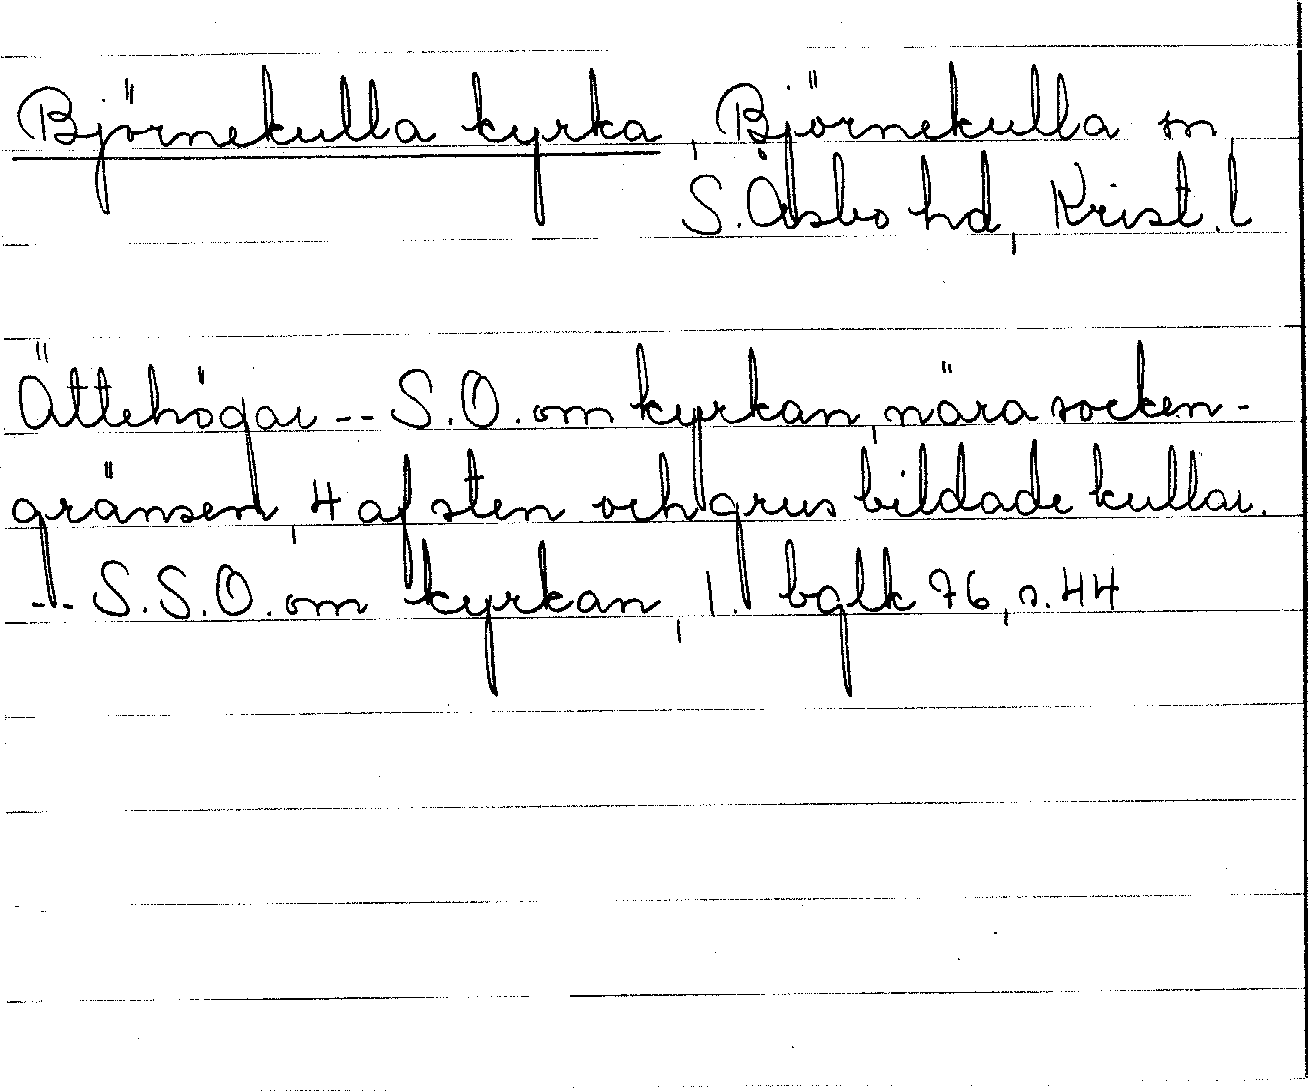 Björnekulla kyrka, Björnekulla sn
S. Åsbo hd, Krist. l
Ättehögar -- S.O. om kyrkan, nära socken-
gränsen, 4 af sten och grus bildade kullar.
-- S.S.O. om kyrkan, 1. bglk 76, s. 44